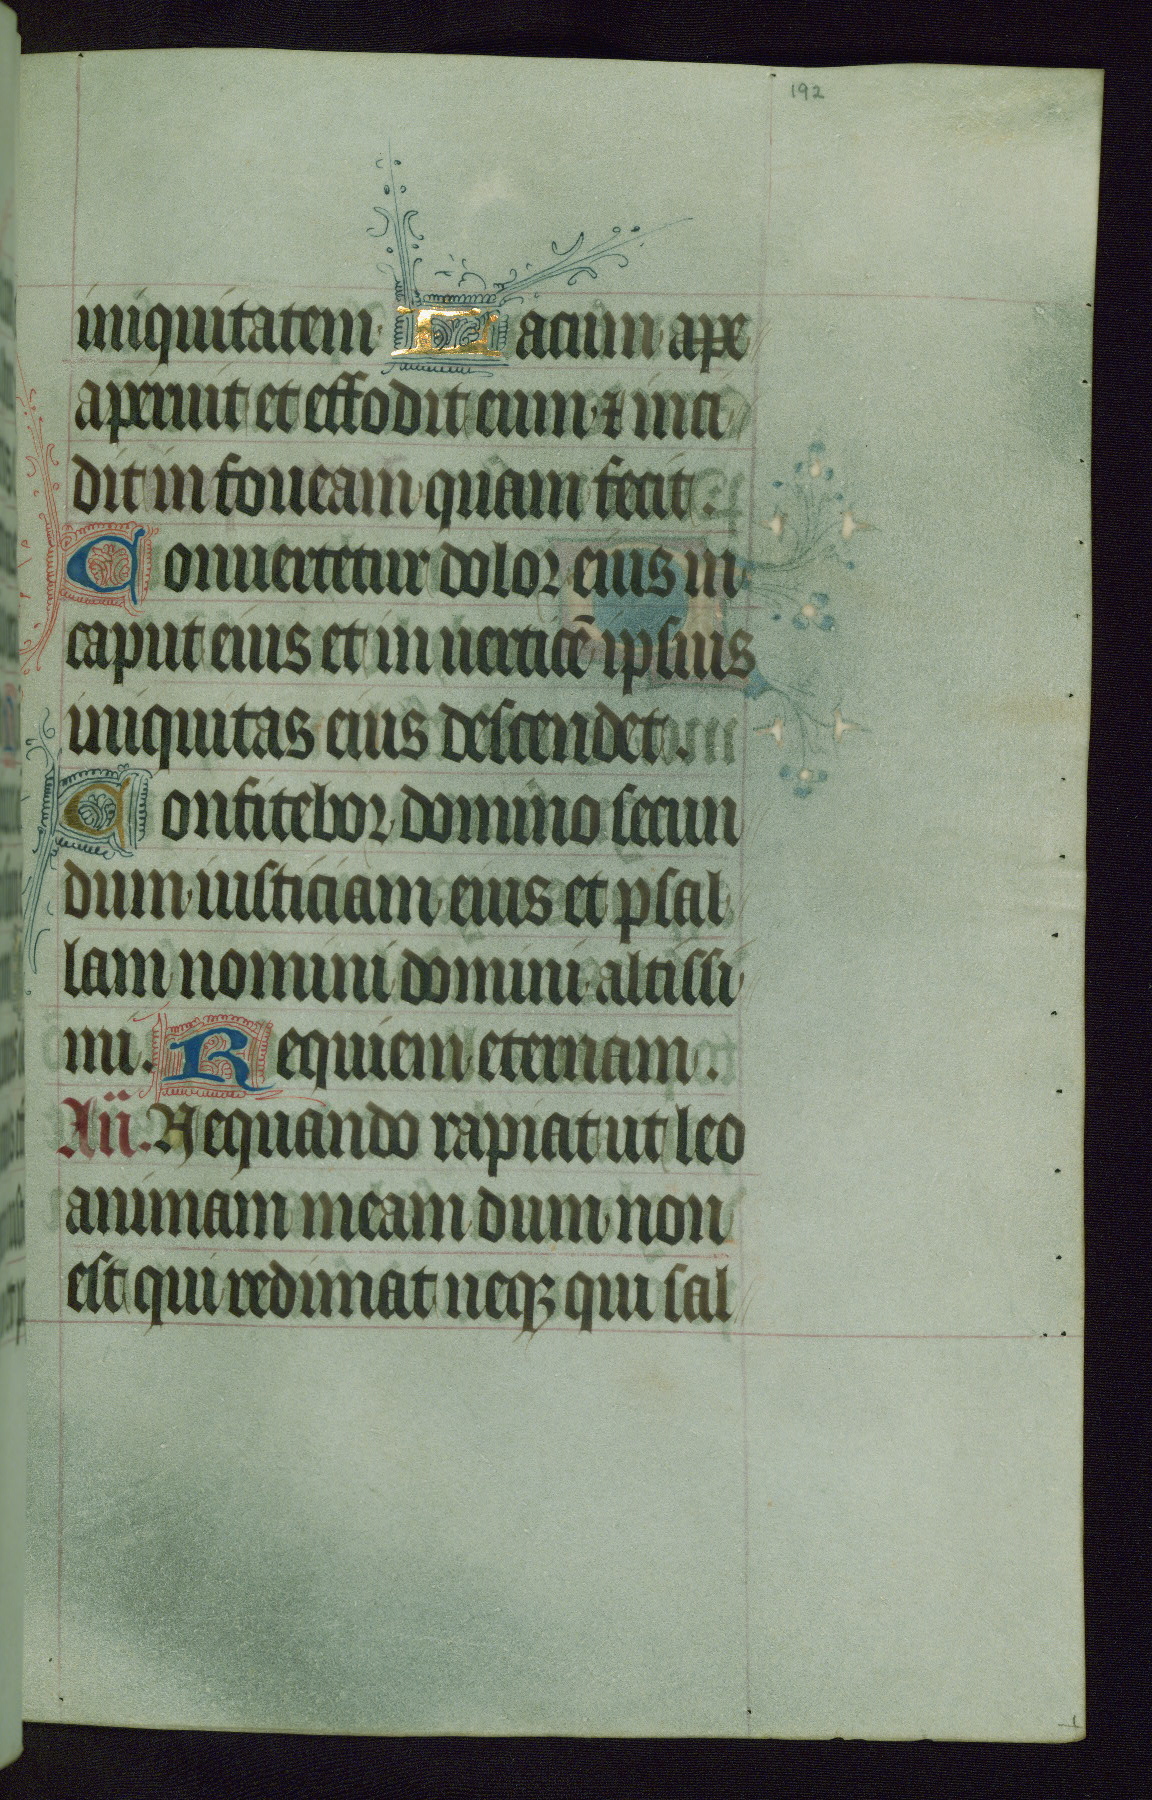 192
iniquitatem Lacum ape
aperuit et effodit eum ⁊ inci
dit in foueam quam fecit.
Conuertetur dolor eius in
caput eius et in uerticē ipsius
iniquitas eius descendet.
Confitebor domino secun
dum iusticiam eius et psal
lam nomini domini altissi
mi. Requiem eternam.
Añ. Nequando rapiat ut leo
animam meam dum non
est qui redimat neqꝫ qui sal